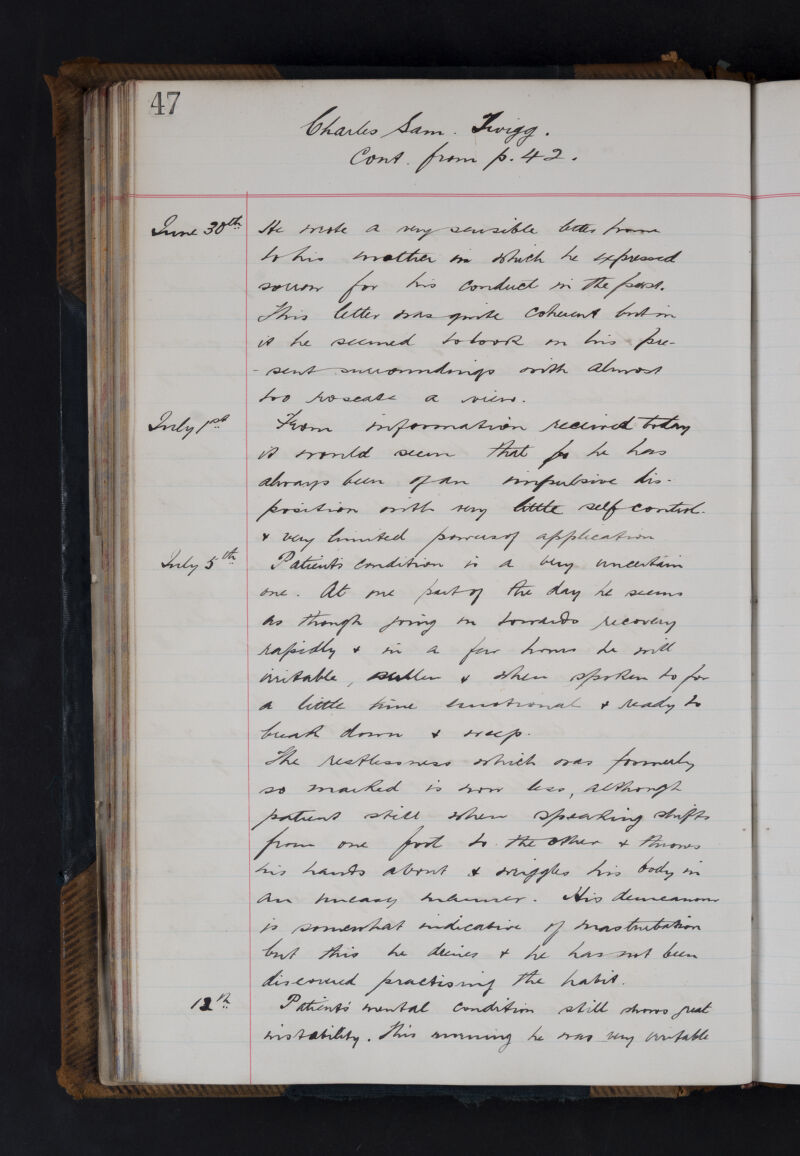 47
Charles Sam. Twigg.
Cont. from p. 42.
June 30th He wrote a very sensible letter home
to his mother in which he expressed
sorrow for his conduct in the past.
This letter was quite coherent but in
it he seemed to look on his pre-
-sent surroundings with almost
too roseate a view.
July 1st From information received today
it would seem that he has
always been of an impulsive dis-
position with very little self control.
& very limited powers of application
July 5th Patients condition is a very uncertain
one. At one part of the day he seems
as though going on towards recovery
rapidly & in a few hours he will
irritable, sullen & when spoken to for
a little time emotional & ready to
break down & weep.
The restlessness which was formerly
so marked is now less, although
patient still when speaking shifts
from one foot to the other & throws
his hands about & wriggles his body in
an uneasy manner. His demeanour
is somewhat indicative of masturbation
but this he denies & he has not been
discovered practising the habit.
12th Patient's mental condition still shows great
instability. This morning he was very irritable